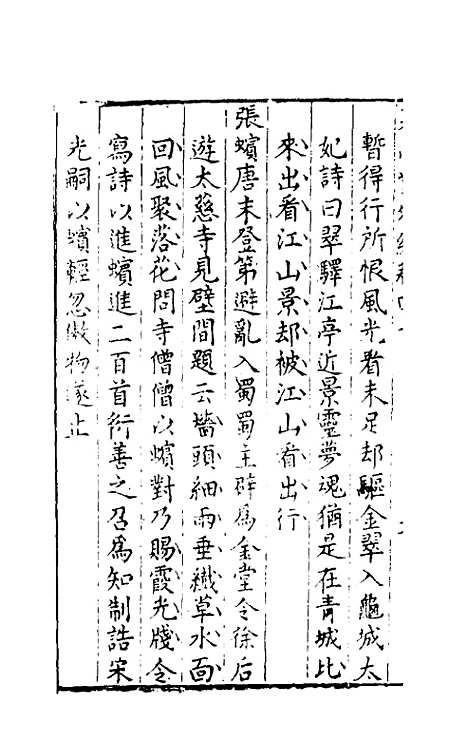 暫得行所恨風光看未足却驅金翠入龜城太
妃詩曰翠驛江亭近景靈夢魂猶是在青城比
來出看江山景却被江山看出行
張蠙唐末登第避亂入蜀蜀主辟為金堂令徐后
遊太慈寺見壁間題云墻頭細雨垂纖草水面
回風聚落花問寺僧僧以蠙對乃賜霞光牋令
寫詩以進蠙進二百首衍善之召為知制誥宋
光嗣以蠙輕忽傲物遂止